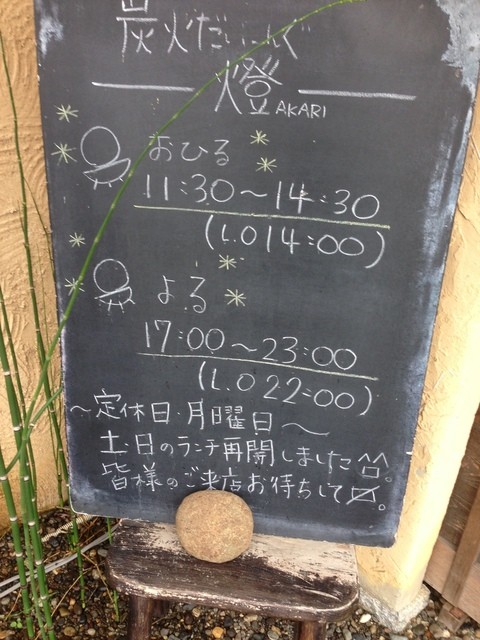 炭火だいにんぐ
燈 AKARI
おひる
11:30〜14:30
(L.O 14:00)
よる
17:00〜23:00
(L.O 22:00)
〜定休日・月曜日〜
土・日のランチ再開しました
皆様のご来店お待ちして〼。